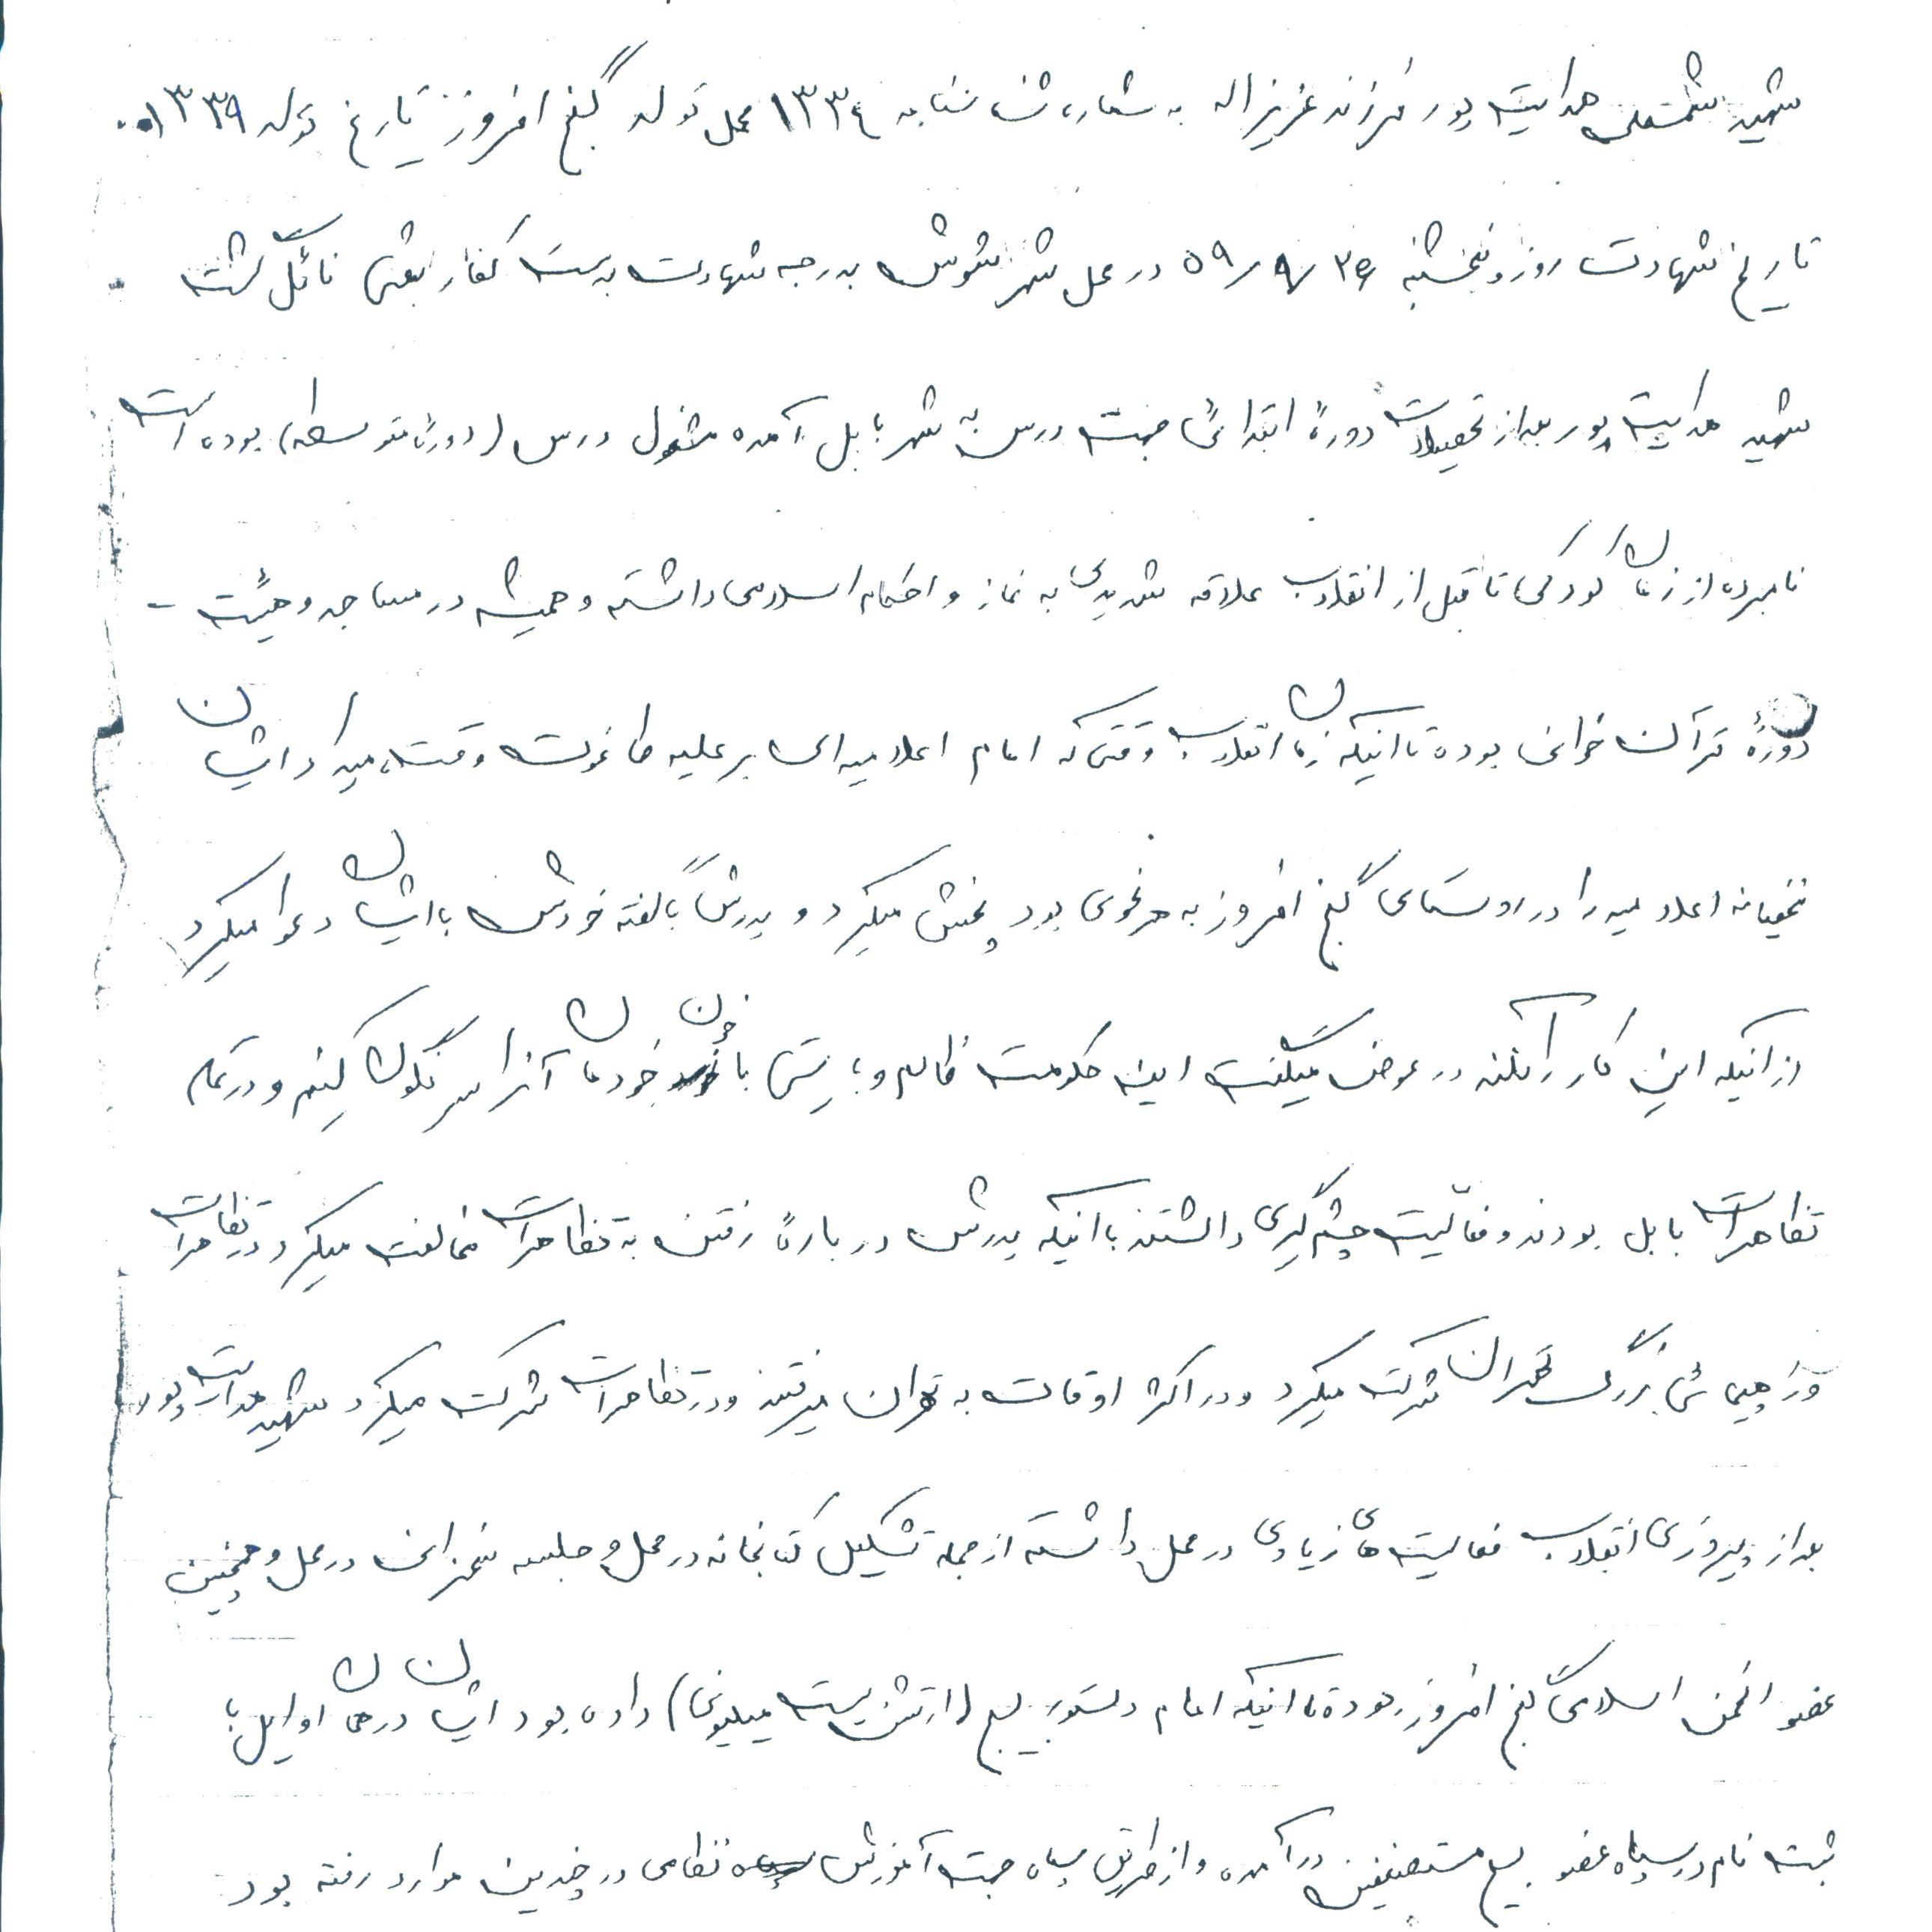 شهید شمسعلی هدایت پور فرزند عزیزاله به شماره شناسنامه ۱۳۳۴ محل تولد گنج افروز تاریخ تولد ۱۳۳۹
تاریخ شهادت روز پنجشنبه در محل شهر شوش به درجه شهادت بدست کفار بعثی نائل گشت
شهید هدایت پور بعد از تحصیلات دورهٔ ابتدائی جهت درس به شهر بابل آمده مشغول درس (دورهٔ متوسطه) بوده است
نامبرده از زمان کودکی تا قبل از انقلاب علاقه شدیدی به نماز و احکام اسلامی داشته و همیشه در مساجد و هیئت -
دورهٔ قرآن خوانی بوده تا اینکه زمان انقلاب وقتی که امام اعلامیه ای بر علیه طاغوت وقت میداد ایشان
مخفیانه اعلامیه را در روستای گنج افروز به هر نحوی بود پخش میکرد و پدرش با گفته خودش با ایشان دعوا میکرد
از اینکه این کار را نکند در عوض میگفت این حکومت ظالم و بایستی با خون خود ما آنرا سرنگون کنیم و در تمام
تظاهرات بابل بودند و فعالیت چشم گیری داشتند با اینکه پدرش در بارهٔ رفتن به تظاهرات مخالفت میکرد در تظاهرات
و راهپیمائی بزرگ تهران شرکت میکرد و در اکثر اوقات به تهران میرفتند و در تظاهرات شرکت میکرد شهید هدایت پور
بعد از پیروزی انقلاب فعالیت های زیادی در محل داشته از جمله تشکیل کتابخانه در محل و جلسه سخنرانی در محل و همچنین
عضو انجمن اسلامی گنج افروز بوده تا اینکه امام دستور بسیج (ارتش بیست میلیونی) داده بود ایشان در همان اوایل با
ثبت نام در سپاه عضو بسیج مستضعفین درآمده و از طریق سپاه جهت آموزش نظامی در چندین موارد رفته بود